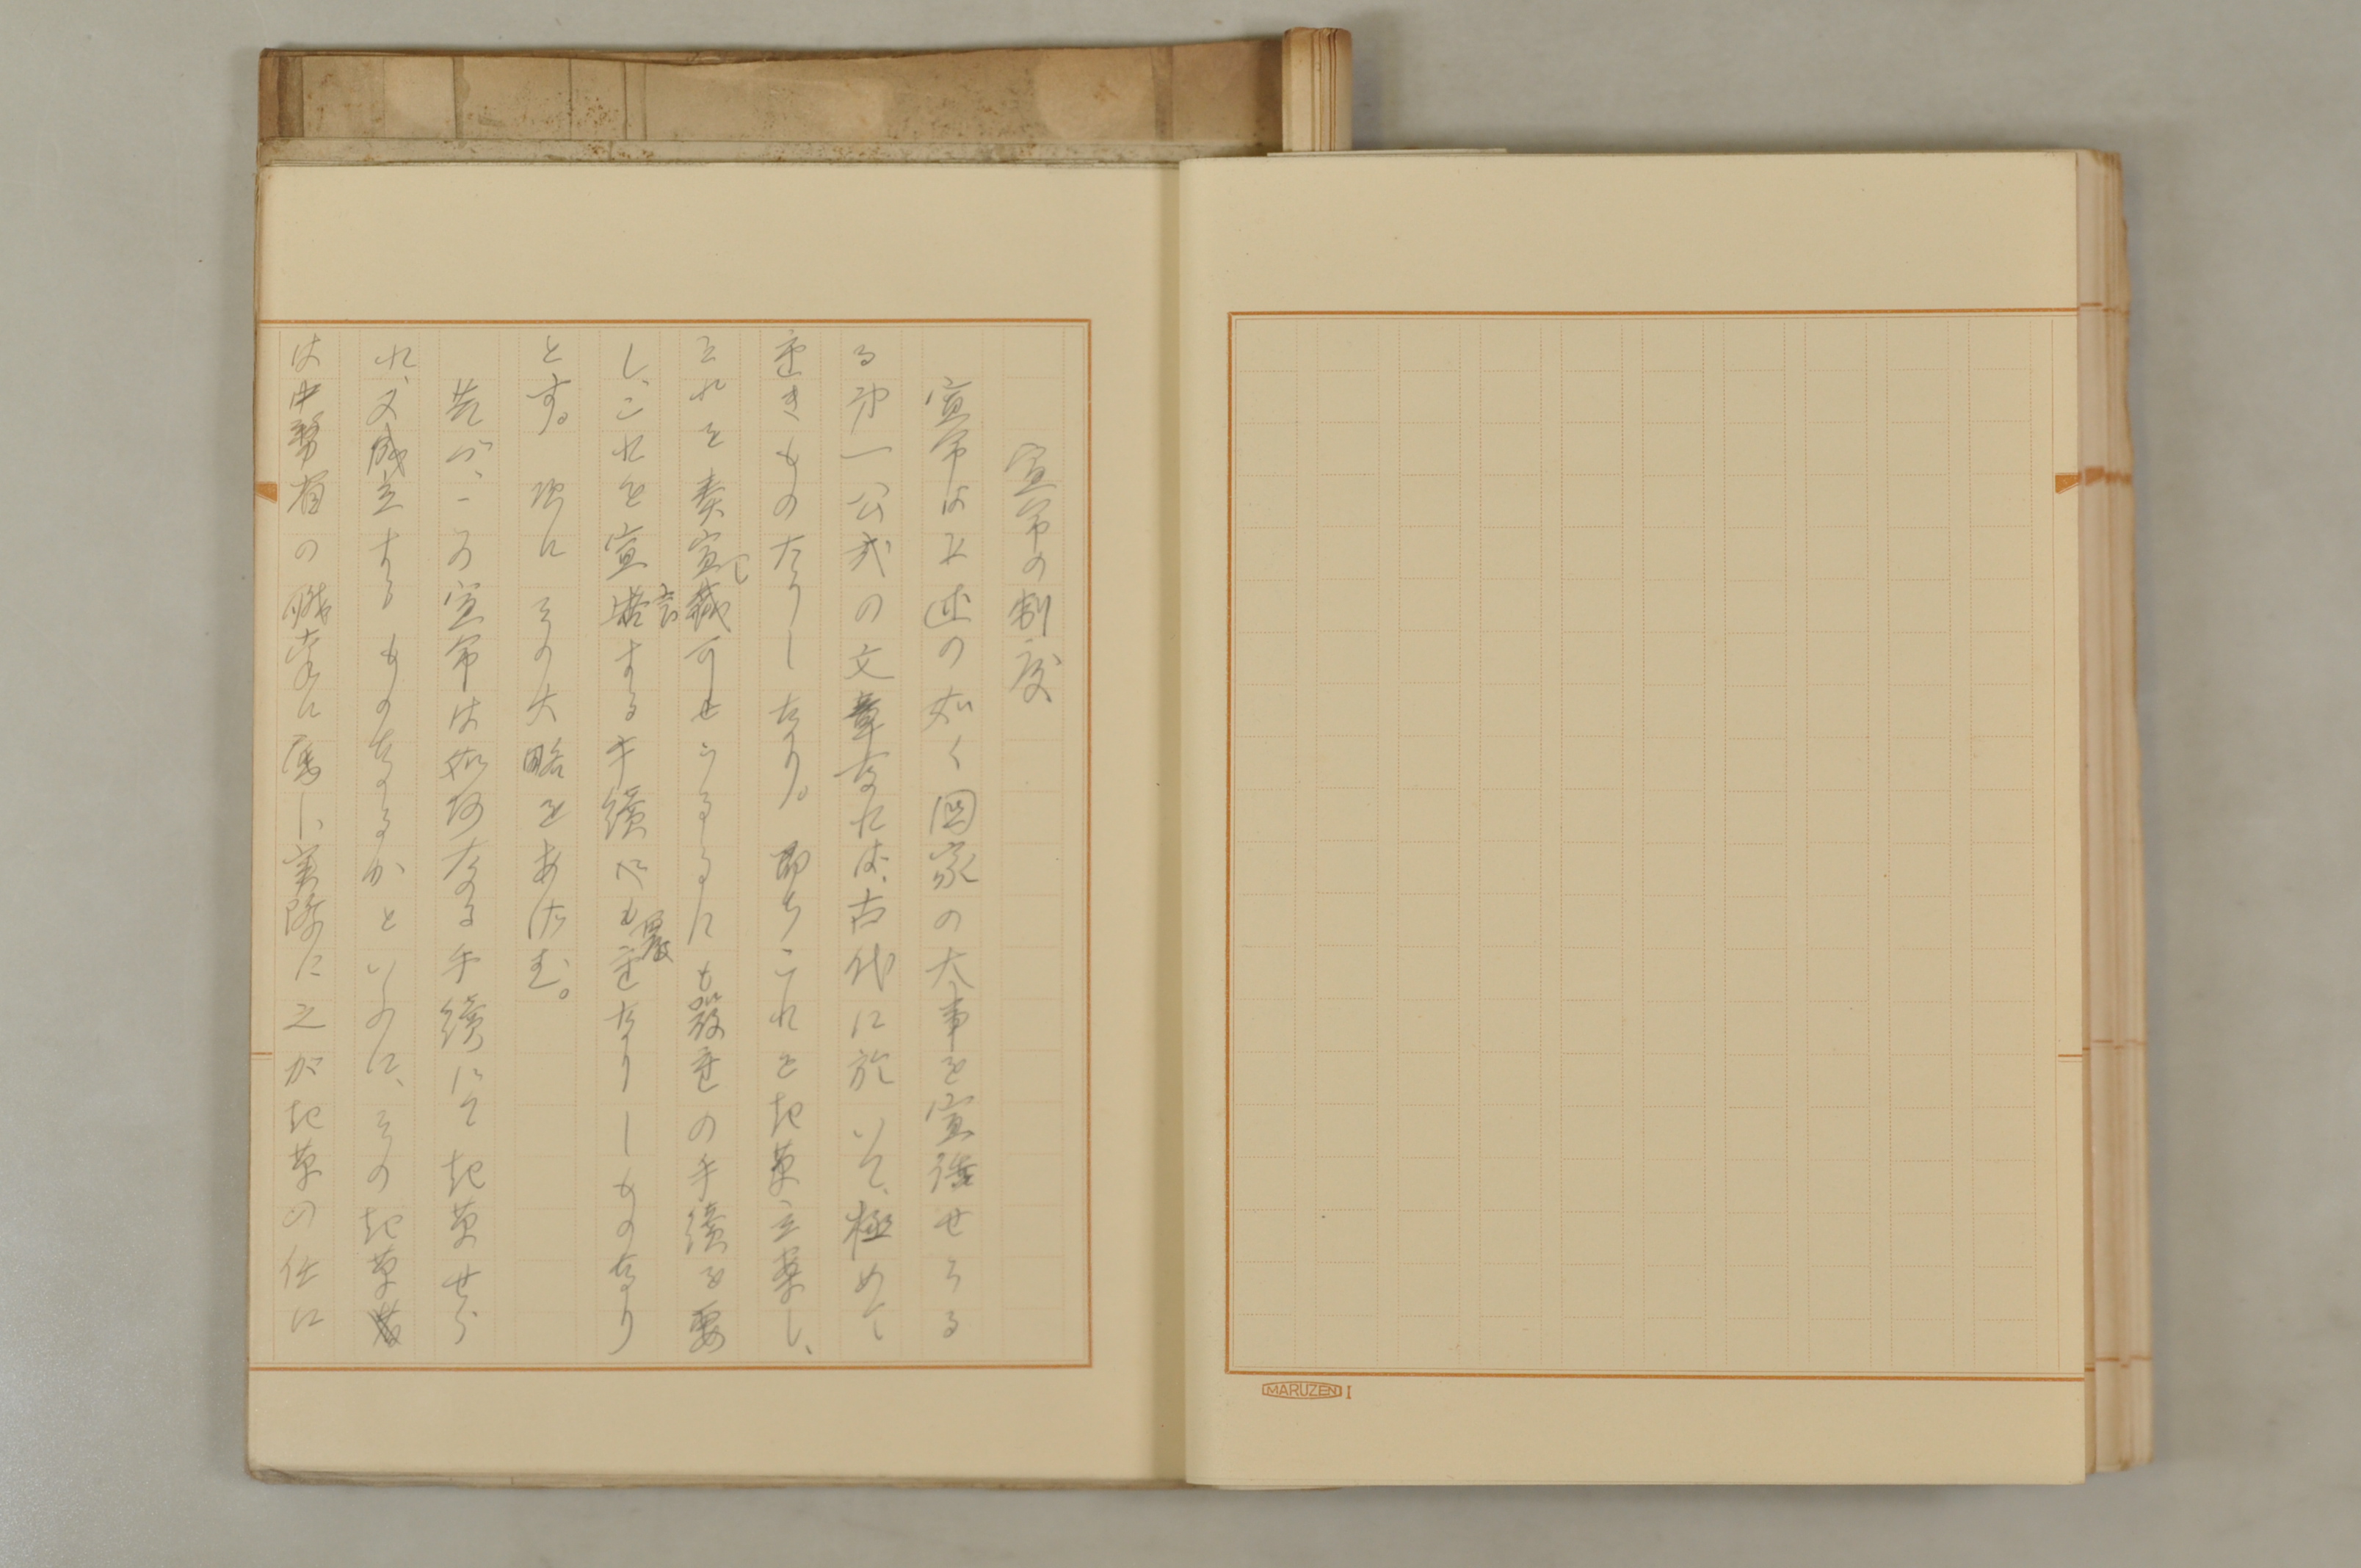 宣命の制度
宣命は上述の如く国家の大事を宣律せらる
る第一公式の文章なれば、古代に於いて、極めて
重きものたりしなり。即ちこれを起草立案し、
それを奏宣し裁可せらるるにも厳重の手續を要
し、これを宣する手續にも厳重なりしものなり
とす。次にその大略をあげむ。
然らば、この宣命は如何なる手續にて起草せら
れ、又成立するものなるかといふに、その起草
は中務省の職掌に属し、実際に之が起草の仕に
MARUZEN I